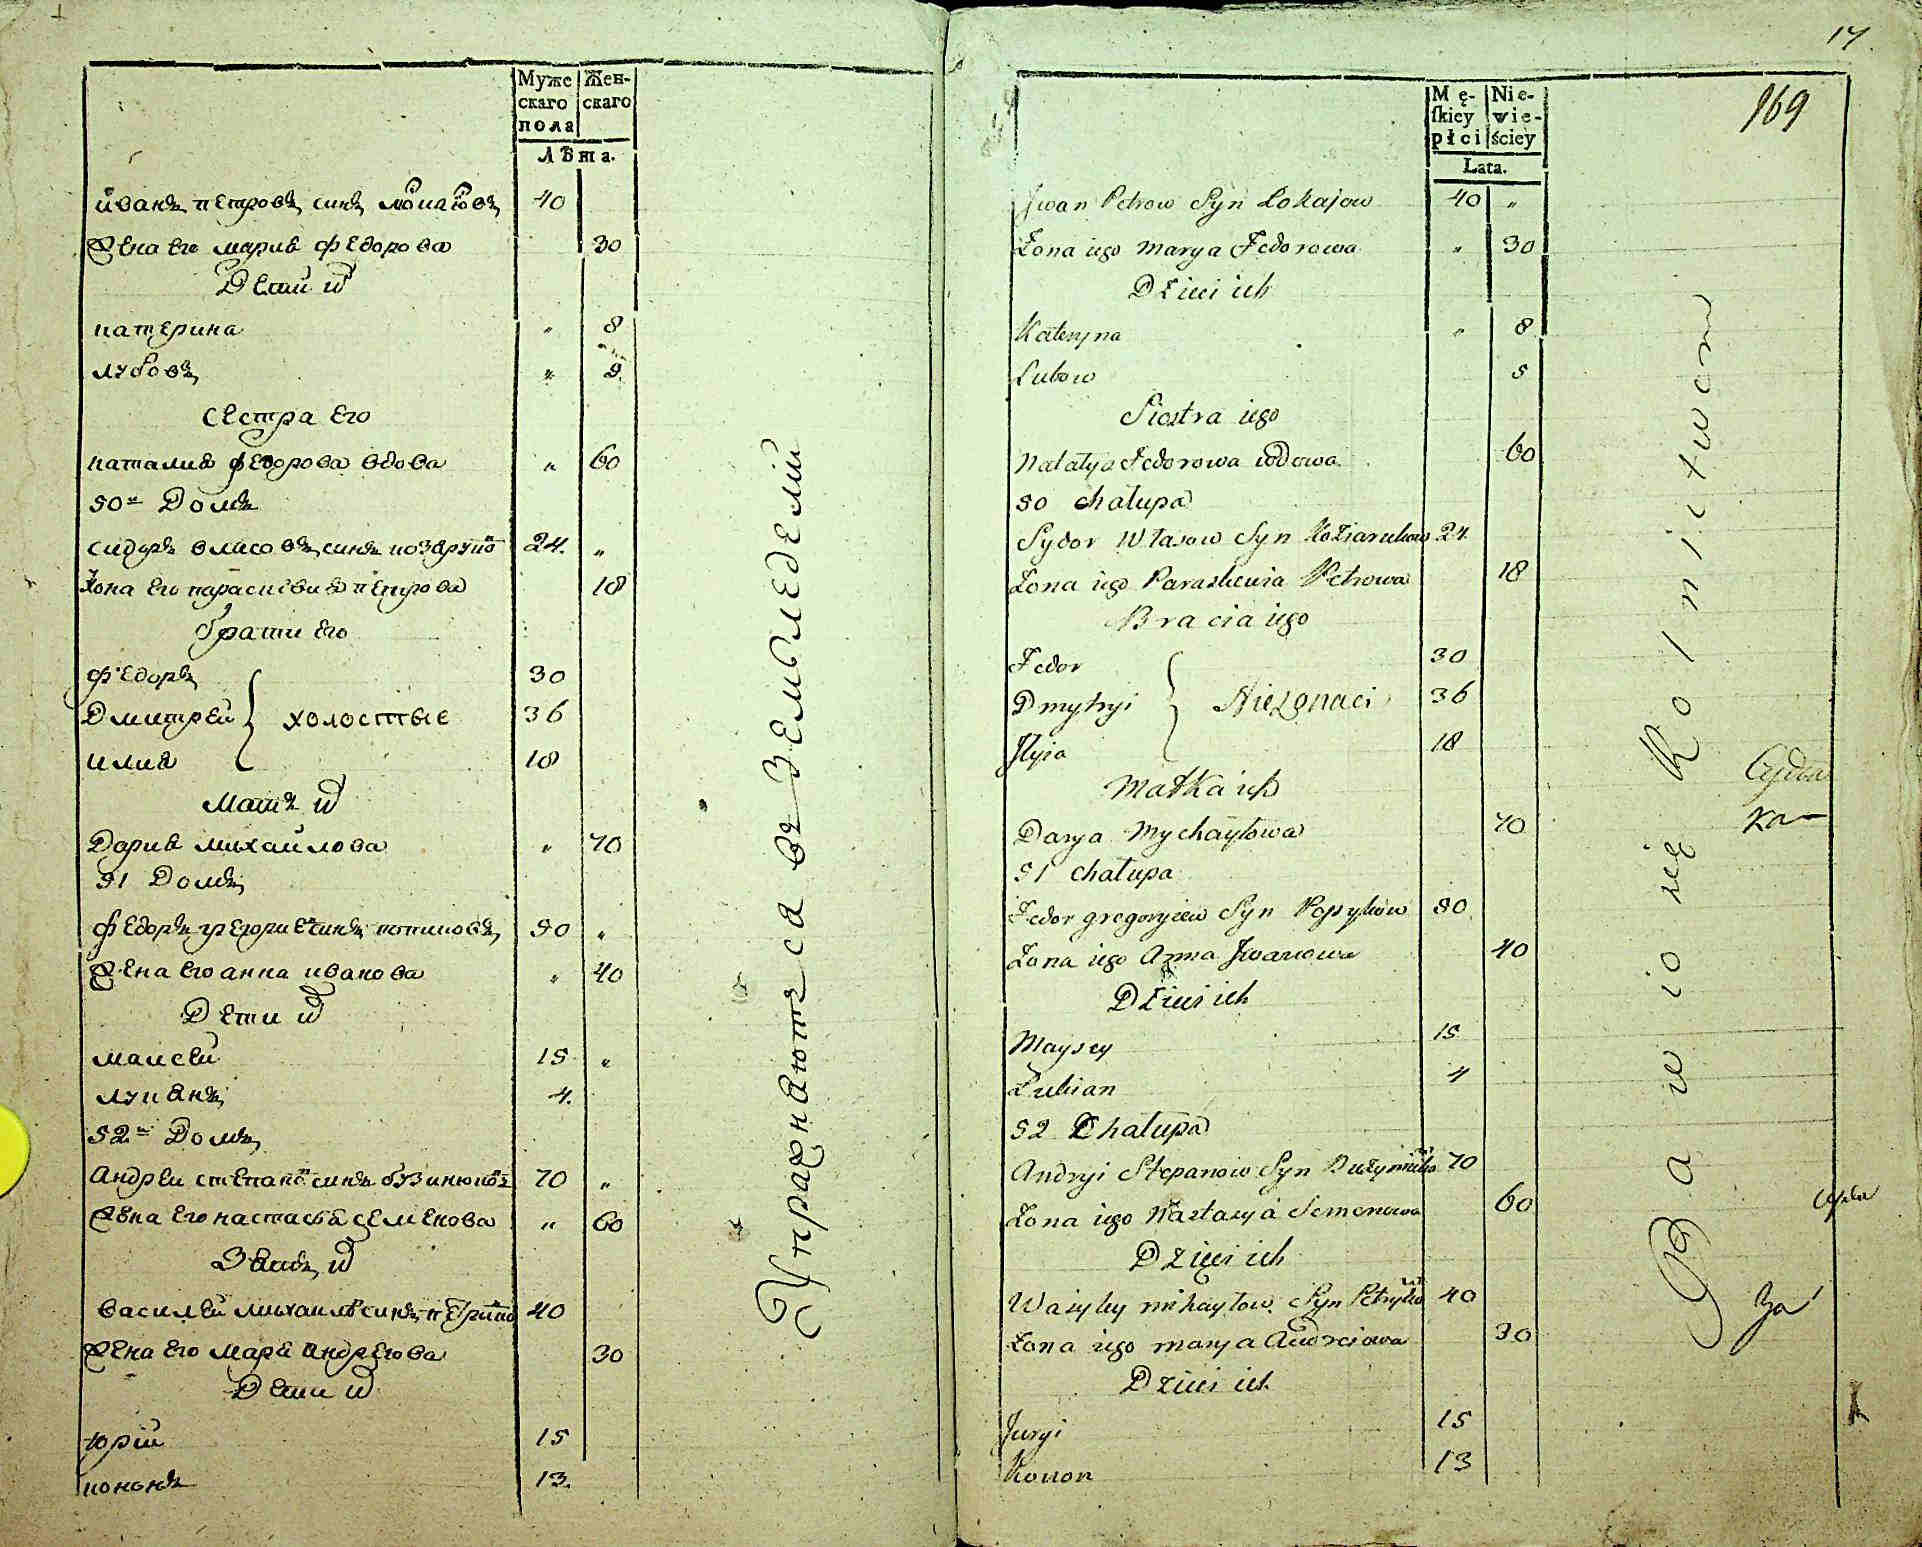 Муже Жен-
скаго скаго
пола
Лѣта.
иванъ петровъ синъ локаювъ 40
Жена его мария федорова 30
Дети их
катерина " 8
лубовъ " 5.
сестра его
наталия федорова вдова " 60
50й Домъ
сидоръ власовъ синъ 24. "
жона его параскевия петрова 18
брати его
федоръ 30
Дмитрей холостые 36
илия 18
Матъ их
Дария михайлова " 70
51 Домъ
федоръ григорие синъ 50 "
Жена его анна иванова " 40
Дети их
маисей 15 "
лукянъ 4.
52й Домъ
Андреи степано синъ 70 "
Жена его настасья семенова " 60
Зять их
василей михаило синъ 40
Жена его мария андреюва 30
Дети их
юрій 15
кононъ 13.
Упражняютъся въ Земледелии
17
169
Mę- Nie-
ſkiey wie-
płci ściey
Lata.
Jwan Petrow Syn Lokajow 40 "
Żona iego Marya Fedorowa " 30
Dzieci ich
Kateryna " 8
Lubow 5
Siostra iego
Natalya Fedorowa wdowa 60
50 chałupa
Sydor Własow Syn 24.
Żona iego Paraskewia Petrowa 18
Bracia iego
Fedor 30
Dmytryi Nieżonaci 36
Jlyia 18
Matka ich
Darya Mychayłowa 70
51 chałupa
Fedor gregoryiew Syn 50
Żona iego Anna Jwanowa 40
Dzieci ich
Maysey 15
Łukian 4
52 Chałupa
Andryi Stepanow Syn 70
Żona iego Nastasyia Semenowa 60
Dzieci ich
Wasyley mihayłow Syn 40
Żona iego marya Andreiowa 30
Dzieci ich
Juryi 15
Konon 13
Bawio się Rolnictwem
За